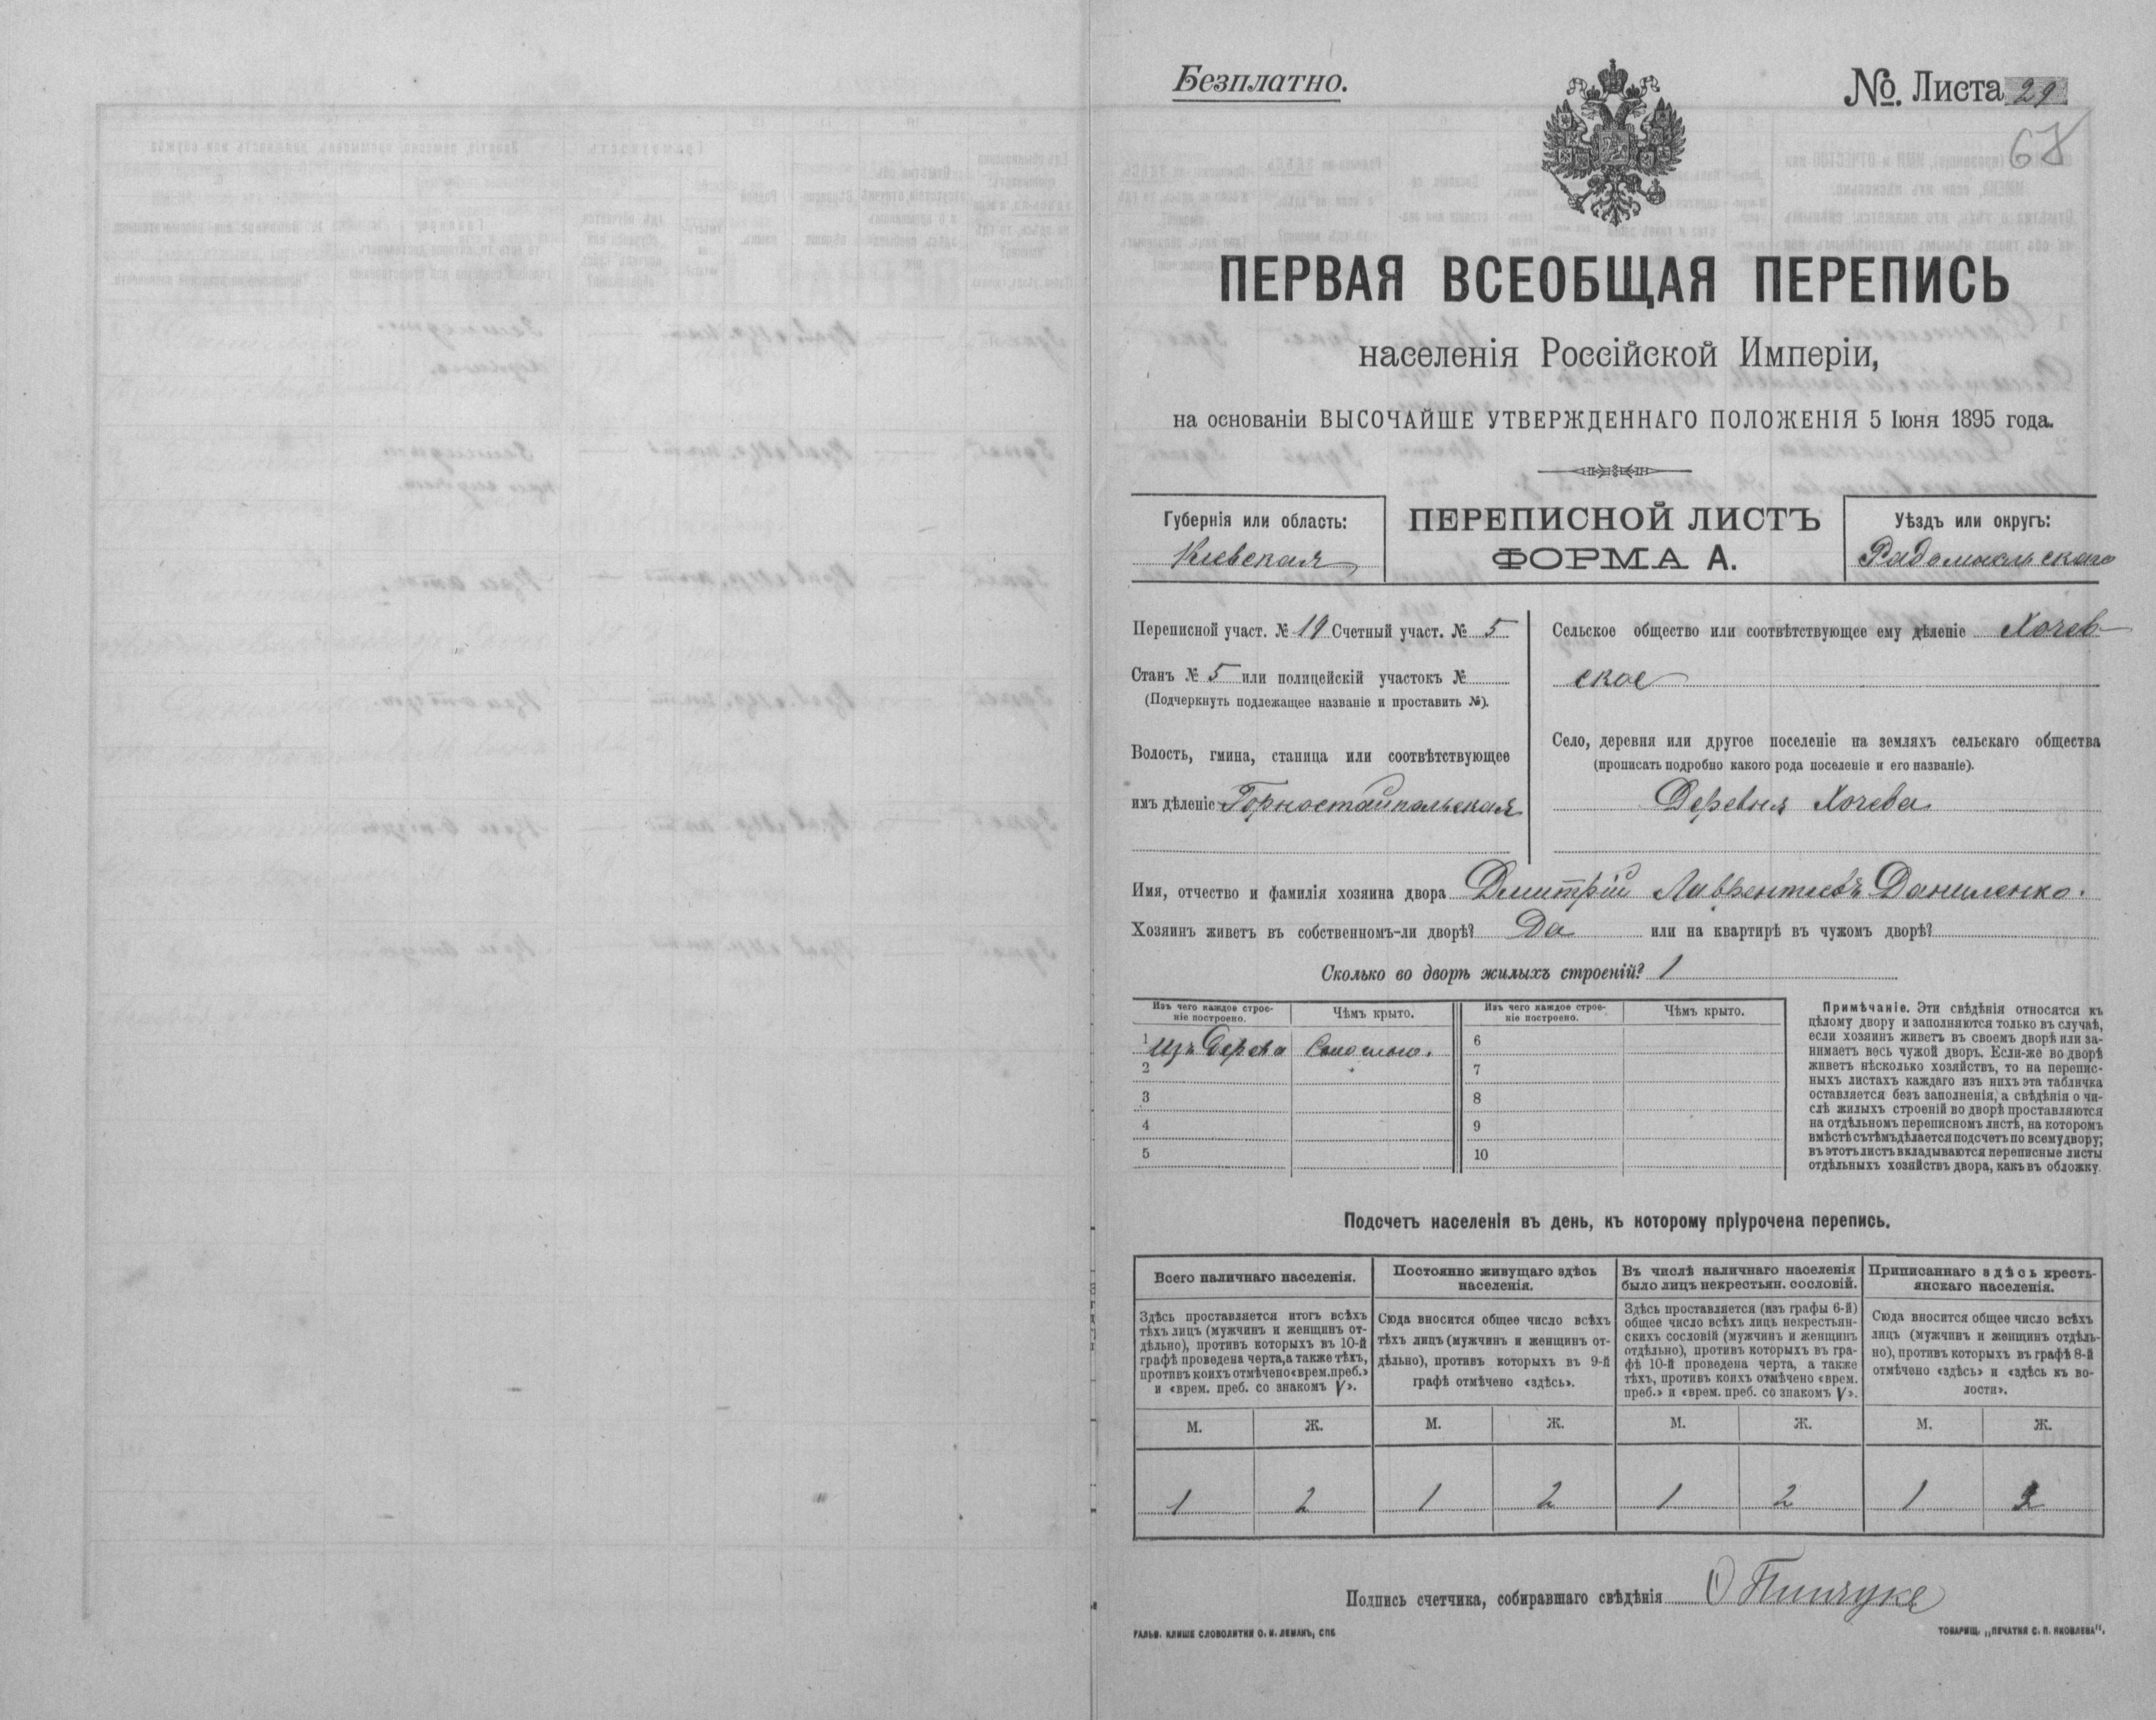 Безплатно.
№. Листа 29
68
ПЕРВАЯ ВСЕОБЩАЯ ПЕРЕПИСЬ
населенія Россійской Имперіи,
на основаніи ВЫСОЧАЙШЕ УТВЕРЖДЕННАГО ПОЛОЖЕНІЯ 5 Іюня 1895 года.
Губернія или область:
Кіевская
ПЕРЕПИСНОЙ ЛИСТЪ
ФОРМА А.
Уѣздъ или округъ:
Радомысльскаго
Переписной участ. № 19 Счетный участ. № 5
Станъ № 5 или полицейскій участокъ №
(Подчеркнуть подлежащее названіе и проставить №).
Волость, гмина, станица или соотвѣтствующее
имъ дѣленіе Горностайпольская
Сельское общество или соотвѣтствующее ему дѣленіе Хочев-
ское
Село, деревня или другое поселеніе на земляхъ сельскаго общества
(прописать подробно какого рода поселеніе и его названіе).
Деревня Хочева
Имя, отчество и фамилія хозяина двора Дмитрій Лаврентіевъ Даниленко.
Хозяинъ живетъ въ собственномъ-ли дворѣ? Да или на квартирѣ въ чужомъ дворѣ?
Сколько во дворѣ жилыхъ строеній? 1
Изъ чего каждое строе-
ніе построено.
Чѣмъ крыто.
Изъ чего каждое строе-
ніе построено.
Чѣмъ крыто.
1 Изъ дерева Соломою.
2
3
4
5
6
7
8
9
10
Примѣчаніе. Эти свѣдѣнія относятся къ
цѣлому двору и заполняются только въ случаѣ,
если хозяинъ живетъ въ своемъ дворѣ или за-
нимаетъ весь чужой дворъ. Если-же во дворѣ
живетъ нѣсколько хозяйствъ, то на перепис-
ныхъ листахъ каждаго изъ нихъ эта табличка
оставляется безъ заполненія, а свѣдѣнія о чи-
слѣ жилыхъ строеній во дворѣ проставляются
на отдѣльномъ переписномъ листѣ, на которомъ
вмѣстѣ съ тѣмъ дѣлается подсчетъ по всему двору;
въ этотъ листъ вкладываются переписные листы
отдѣльныхъ хозяйствъ двора, какъ въ обложку.
Подсчетъ населенія въ день, къ которому пріурочена перепись.
Всего наличнаго населенія.
Здѣсь проставляется итогъ всѣхъ
тѣхъ лицъ (мужчинъ и женщинъ от-
дѣльно), противъ которыхъ въ 10-й
графѣ проведена черта, а также тѣхъ,
противъ коихъ отмѣчено «врем. преб.»
и «врем. преб. со знакомъ V».
Постоянно живущаго здѣсь
населенія.
Сюда вносится общее число всѣхъ
тѣхъ лицъ (мужчинъ и женщинъ от-
дѣльно), противъ которыхъ въ 9-й
графѣ отмѣчено «здѣсь».
Въ числѣ наличнаго населенія
было лицъ некрестьян. сословій.
Здѣсь проставляется (изъ графы 6-й)
общее число всѣхъ лицъ некрестьян-
скихъ сословій (мужчинъ и женщинъ
отдѣльно), противъ которыхъ въ гра-
фѣ 10-й проведена черта, а также
тѣхъ, противъ коихъ отмѣчено «врем.
преб.» и «врем. преб. со знакомъ V».
Приписаннаго здѣсь кресть-
янскаго населенія.
Сюда вносится общее число всѣхъ
лицъ (мужчинъ и женщинъ отдѣль-
но), противъ которыхъ въ графѣ 8-й
отмѣчено «здѣсь» и «здѣсь къ во-
лости».
М. Ж. М. Ж. М. Ж. М. Ж.
1 2 1 2 1 2 1 2
Подпись счетчика, собиравшаго свѣдѣнія
ГАЛЬВ. КЛИШЕ СЛОВОЛИТНИ О. И. ЛЕМАНЪ, СПБ
ТОВАРИЩ. „ПЕЧАТНЯ С. П. ЯКОВЛЕВА".